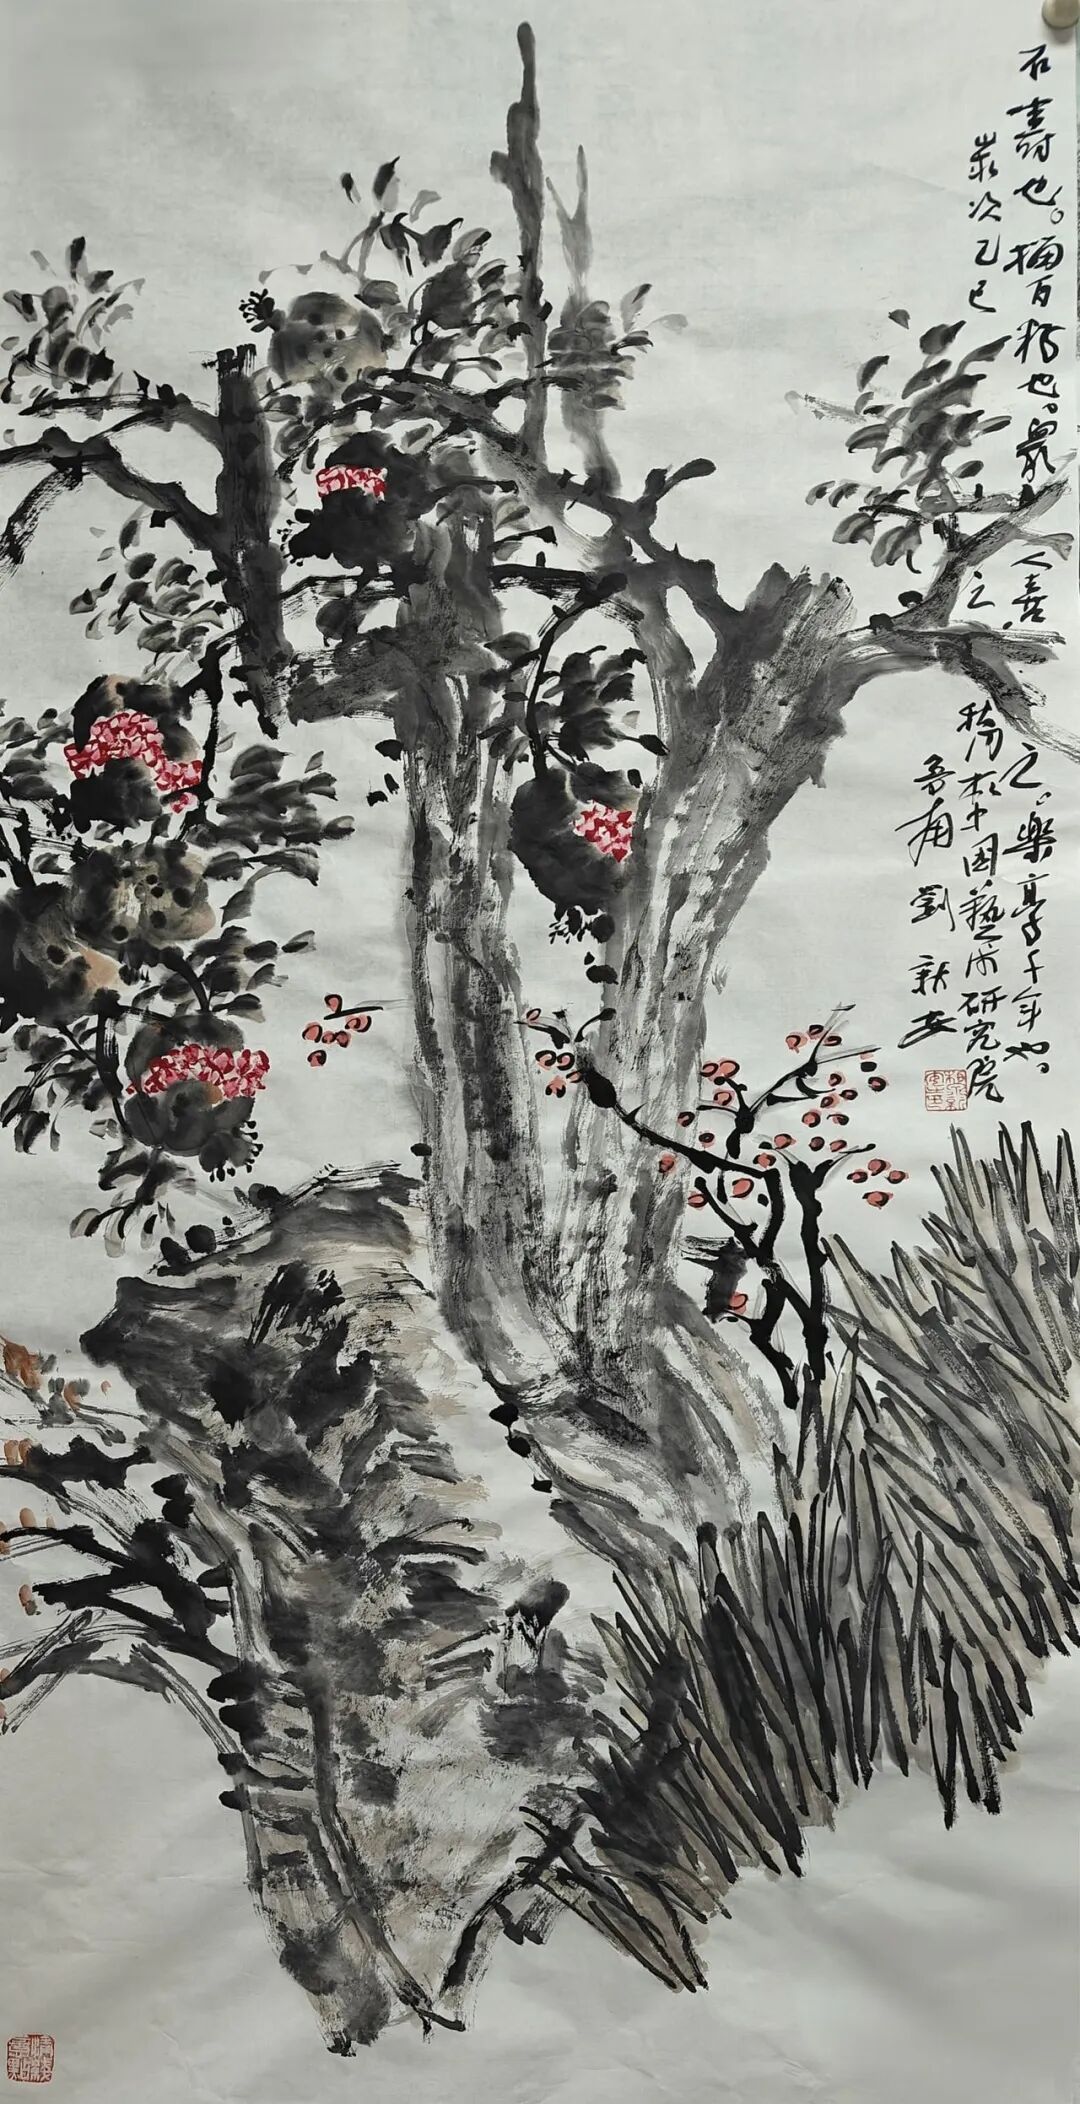 石壽也。榴百籽也。最人喜之。樂享千年也。
歲次乙巳之秋月於中國藝术研究院
魯南劉新安